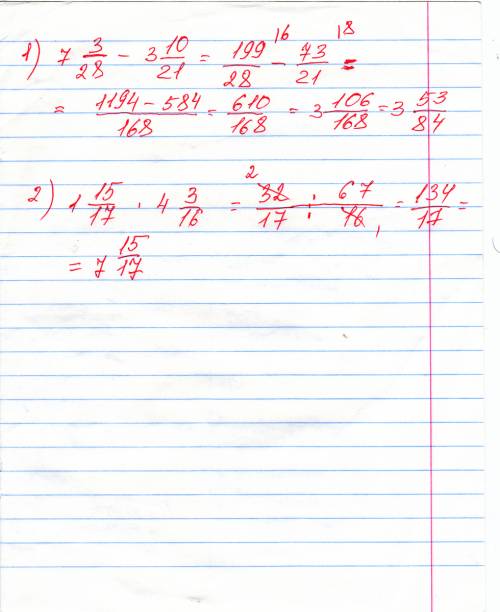 1) 7 3/28 − 3 10/21 = 199/28 |6 − 73/21 |8 =
= 1194 − 584/168 = 610/168 = 3 106/168 = 3 53/84
2) 1 15/17 · 4 3/16 = 2 32 · 67/17 · 16 1 = 134/17 =
= 7 15/17